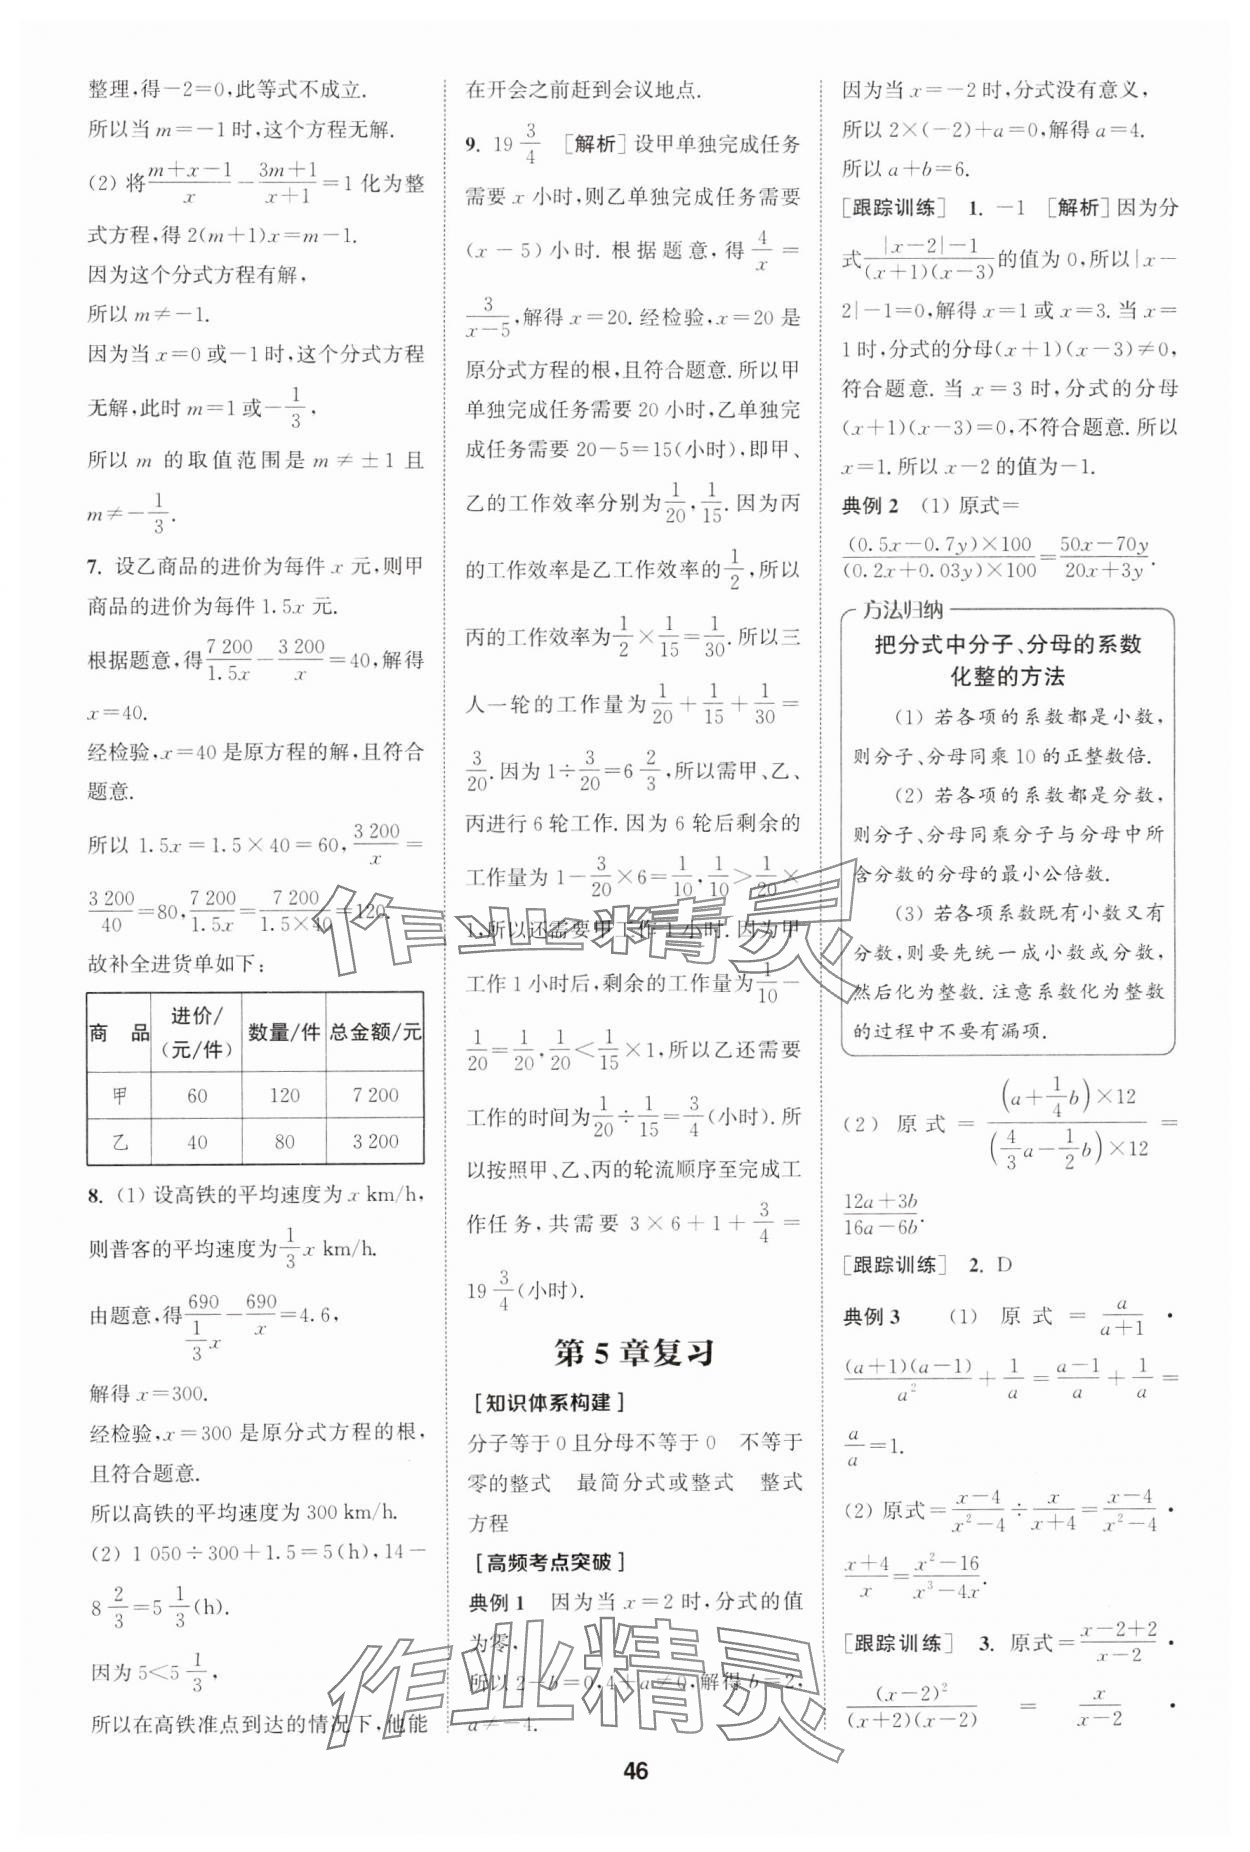 整理,得-2=0,此等式不成立.
所以当 m=-1时,这个方程无解.
(2) 将(m+x-1)/x-(3m+1)/(x+1)=1 化为整
式方程,得 2(m+1)x=m-1.
因为这个分式方程有解,
所以 m≠-1.
因为当x=0或-1时,这个分式方程
无解,此时 m=1或-1/3,
所以 m 的取值范围是 m≠±1 且
m≠-1/3.
7. 设乙商品的进价为每件 x 元,则甲
商品的进价为每件 1.5x 元.
根据题意,得7 200/1.5x-3 200/x=40,解得
x=40.
经检验,x=40是原方程的解,且符合
题意.
所以 1.5x=1.5×40=60,3 200/x=
3 200/40=80,7 200/1.5x=7 200/(1.5×40)=120.
故补全进货单如下:
商 品 进价/(元/件) 数量/件 总金额/元
甲 60 120 7 200
乙 40 80 3 200
8. (1) 设高铁的平均速度为 x km/h,
则普客的平均速度为1/3x km/h.
由题意,得690/(1/3x)-690/x=4.6,
解得 x=300.
经检验,x=300 是原分式方程的根,
且符合题意.
所以高铁的平均速度为 300 km/h.
(2) 1 050÷300+1.5=5(h),14-
8 2/3=5 1/3(h).
因为 5<5 1/3,
所以在高铁准点到达的情况下,他能
在开会之前赶到会议地点.
9. 19 3/4 [解析]设甲单独完成任务
需要 x 小时,则乙单独完成任务需要
(x-5)小时. 根据题意,得 4/x=
3/(x-5),解得 x=20. 经检验,x=20 是
原分式方程的根,且符合题意. 所以甲
单独完成任务需要 20 小时,乙单独完
成任务需要 20-5=15(小时),即甲、
乙的工作效率分别为1/20,1/15. 因为丙
的工作效率是乙工作效率的1/2,所以
丙的工作效率为1/2×1/15=1/30. 所以三
人一轮的工作量为1/20+1/15+1/30=
3/20. 因为 1÷3/20=6 2/3,所以需甲、乙、
丙进行 6 轮工作. 因为 6 轮后剩余的
工作量为 1-3/20×6=1/10,1/10>1/20×
1,所以还需要甲工作 1 小时. 因为甲
工作 1 小时后,剩余的工作量为1/10-
1/20=1/20,1/20<1/15×1,所以乙还需要
工作的时间为1/20÷1/15=3/4(小时). 所
以按照甲、乙、丙的轮流顺序至完成工
作任务,共需要 3×6+1+3/4=
19 3/4(小时).
第 5 章复习
[知识体系构建]
分子等于 0 且分母不等于 0 不等于
零的整式 最简分式或整式 整式
方程
[高频考点突破]
典例 1 因为当 x=2 时,分式的值
为零,
所以 2-b=0,4+a≠0,解得 b=2,
a≠-4.
因为当 x=-2时,分式没有意义,
所以 2×(-2)+a=0,解得 a=4.
所以 a+b=6.
[跟踪训练] 1. -1 [解析]因为分
式(|x-2|-1)/((x+1)(x-3))的值为 0,所以|x-
2|-1=0,解得 x=1 或 x=3. 当 x=
1时,分式的分母(x+1)(x-3)≠0,
符合题意. 当 x=3 时,分式的分母
(x+1)(x-3)=0,不符合题意. 所以
x=1. 所以 x-2 的值为-1.
典例 2 (1) 原式=
((0.5x-0.7y)×100)/((0.2x+0.03y)×100)=(50x-70y)/(20x+3y).
方法归纳
把分式中分子、分母的系数
化整的方法
(1) 若各项的系数都是小数,
则分子、分母同乘 10 的正整数倍.
(2) 若各项的系数都是分数,
则分子、分母同乘分子与分母中所
含分数的分母的最小公倍数.
(3) 若各项系数既有小数又有
分数,则要先统一成小数或分数,
然后化为整数. 注意系数化为整数
的过程中不要有漏项.
(2) 原式=((a+1/4b)×12)/((4/3a-1/2b)×12)=
(12a+3b)/(16a-6b).
[跟踪训练] 2. D
典例 3 (1) 原式=a/(a+1)·
((a+1)(a-1))/a²+1/a=(a-1)/a+1/a=
a/a=1.
(2) 原式=(x-4)/(x²-4)÷x/(x+4)=(x-4)/(x²-4)·
(x+4)/x=(x²-16)/(x³-4x).
[跟踪训练] 3. 原式=(x-2+2)/(x-2)·
(x-2)²/((x+2)(x-2))=x/(x-2)·
46
作业精灵
作业精灵